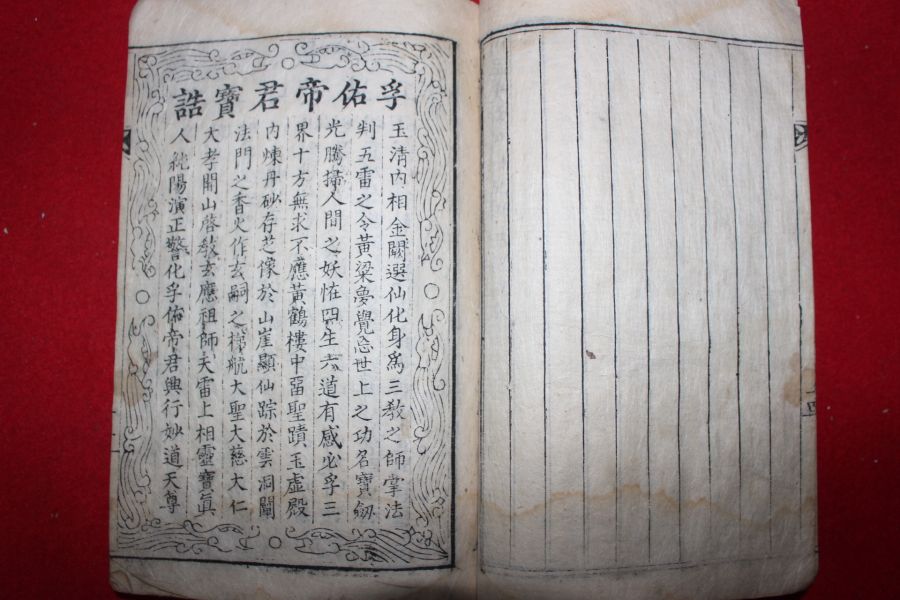 孚佑帝君寶誥
玉清內相金闕選仙化身爲三教之師掌法
判五雷之令黃粱夢覺忘世上之功名寶劒
光騰掃人間之妖怪四生六道有感必孚三
界十方無求不應黃鶴樓中畱聖蹟玉虛殿
內煉丹砂存芝像於山崖顯仙踪於雲洞闡
法門之香火作玄嗣之梯航大聖大慈大仁
大孝開山啓教玄應祖師天雷上相靈寶眞
人純陽演正警化孚佑帝君興行妙道天尊